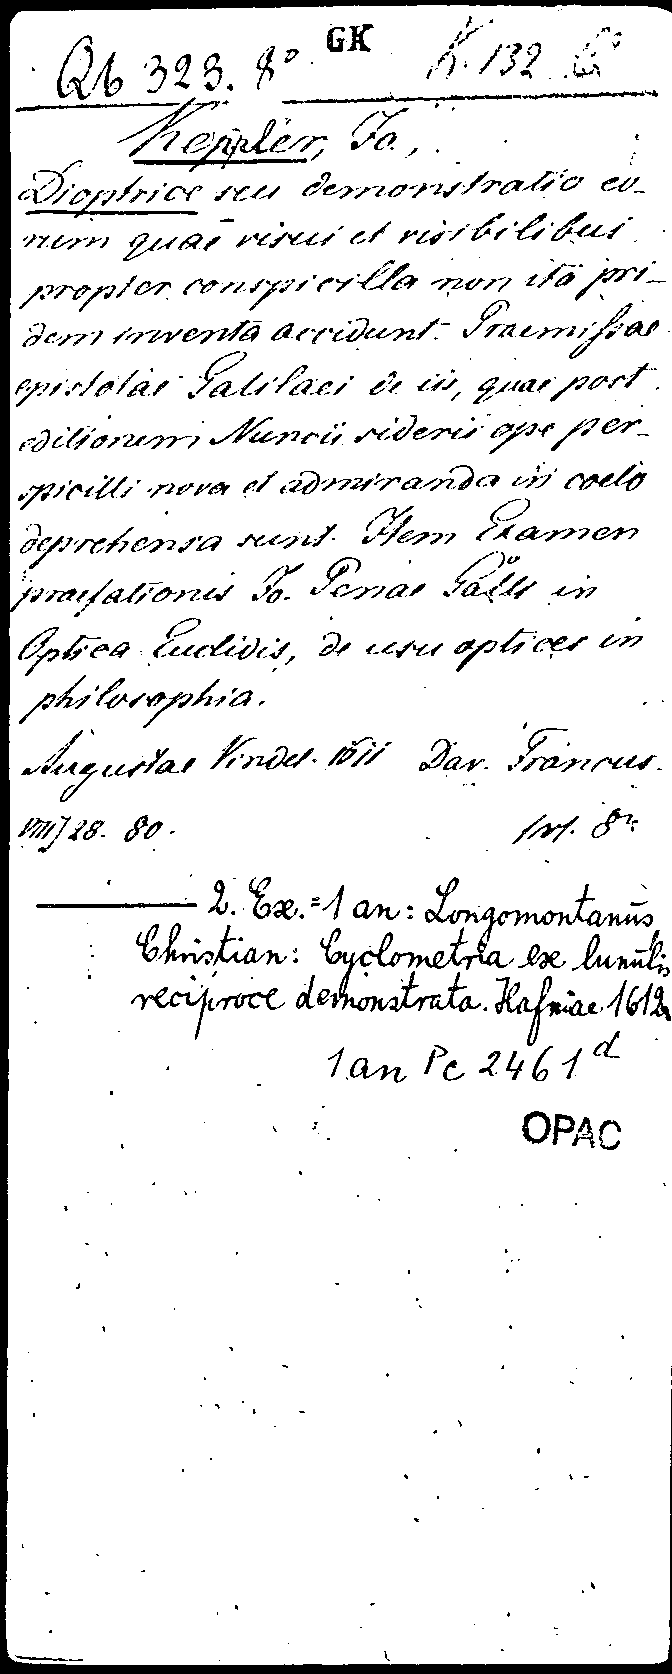 GK
Qb 323. 8° K. 132
Keppler, Jo.,
Dioptrice seu demonstratio eo-
rum quae visui et visibilibus
propter conspicilla non ita pri-
dem inventa accidunt. Praemissae
epistolae Galilaei de iis, quae post
editionem Nuncii siderii ope per-
spicilli nova et admiranda in coelo
deprehensa sunt. Item Examen
praefationis Jo. Penae Galli in
Optica Euclidis, de usu optices in
philosophia.
Augustae Vindel. 1611 Dav. Francus.
VIII, 28. 80.
2. Ex. = 1 an: Longomontanus,
Christian: Cyclometria ex lunulis
reciproce demonstrata. Hafniae 1612.
1 an Pc 2461 d
OPAC